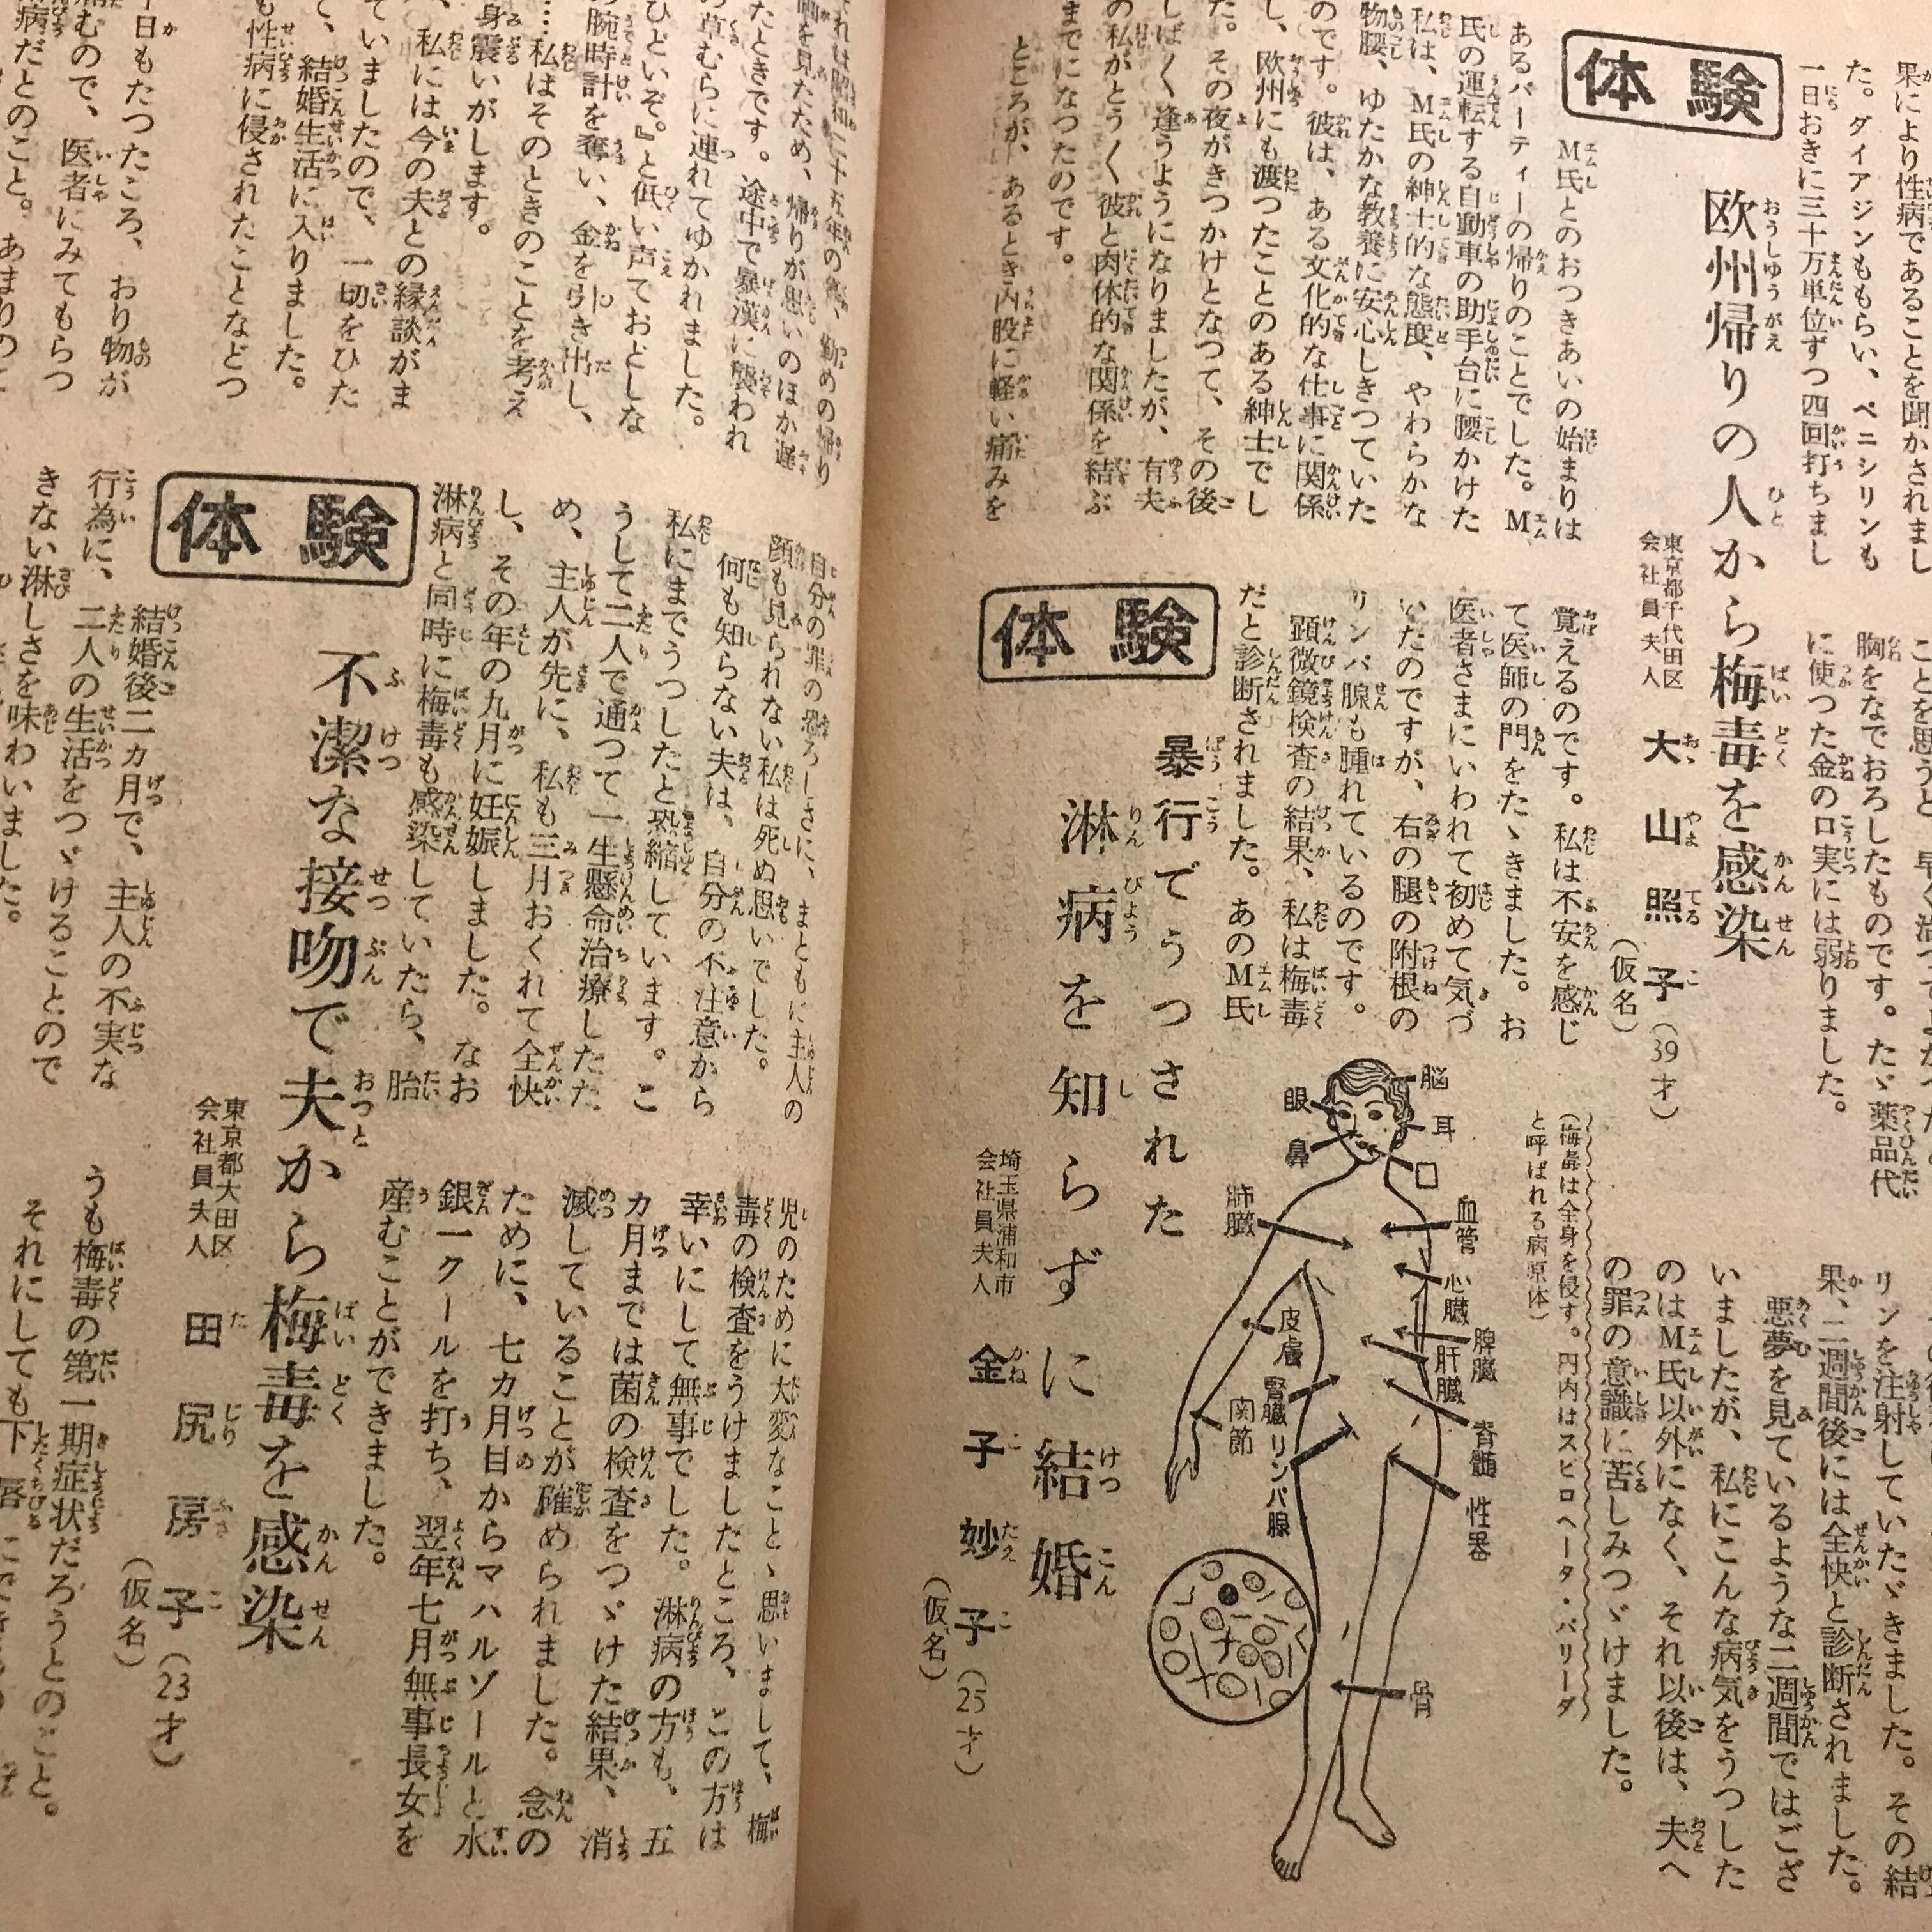 果により性病であることを聞かされまし
た。ダイアジンももらい、ペニシリンも
一日おきに三十万単位ずつ四回打ちまし
胸をなでおろしたものです。たゞ薬品代
に使つた金の口実には弱りました。
体験
欧州帰りの人から梅毒を感染
東京都千代田区
会社員夫人
大山照子(39才)
(仮名)
M氏とのおつきあいの始まりは
あるパーティーの帰りのことでした。M
氏の運転する自動車の助手台に腰かけた
私は、M氏の紳士的な態度、やわらかな
物腰、ゆたかな教養に安心しきつていた
のです。彼は、ある文化的な仕事に関係
し、欧州にも渡つたことのある紳士でし
た。その夜がきつかけとなつて、その後
しばく逢うようになりましたが、有夫
の私がとうく彼と肉体的な関係を結ぶ
までになつたのです。
ところが、あるとき内股に軽い痛みを
覚えるのです。私は不安を感じ
て医師の門をたゝきました。お
医者さまにいわれて初めて気づ
いたのですが、右の腿の附根の
リンパ腺も腫れているのです。
顕微鏡検査の結果、私は梅毒
だと診断されました。あのM氏
リンを注射していたゞきました。その結
果、二週間後には全快と診断されました。
悪夢を見ているような二週間ではござ
いましたが、私にこんな病気をうつした
のはM氏以外になく、それ以後は、夫へ
の罪の意識に苦しみつゞけました。
(梅毒は全身を侵す。円内はスピロヘータ・パリーダ
と呼ばれる病原体)
脳
耳
口
眼
鼻
血管
肺臓
心臓
脾臓
肝臓
皮膚
腎臓
関節
脊髄
リンパ腺
性器
骨
体験
暴行でうつされた
淋病を知らずに結婚
埼玉県浦和市
会社員夫人
金子妙子(25才)
(仮名)
それは昭和二十五年の秋、勤めの帰り
映画を見たため、帰りが思いのほか遅
たときです。途中で暴漢に襲われ
の草むらに連れてゆかれました。
ひどいぞ。』と低い声ておどしな
の腕時計を奪い、金を引き出し、
…私はそのときのことを考え
身震いがします。
、私には今の夫との縁談がま
ていましたので、一切をひた
て、結婚生活に入りました。
も性病に侵されたことなどつ
日もたつたころ、おり物が
痛むので、医者にみてもらつ
病だとのこと。あまりのこ
自分の罪の恐ろしさに、まともに主人の
顔も見られない私は死ぬ思いでした。
何も知らない夫は、自分の不注意から
私にまでうつしたと恐縮しています。こ
うして二人で通つて一生懸命治療したた
め、主人が先に、私も三月おくれて全快
し、その年の九月に妊娠しました。なお
淋病と同時に梅毒も感染していたら、胎
児のために大変なことゝ思いまして、梅
毒の検査をうけましたところ、この方は
幸いにして無事でした。淋病の方も、五
カ月までは菌の検査をつゞけた結果、消
滅していることが確められました。念の
ために、七カ月目からマハルゾールと水
銀一クールを打ち、翌年七月無事長女を
産むことができました。
体験
不潔な接吻で夫から梅毒を感染
東京都大田区
会社員夫人
田尻房子(23才)
(仮名)
結婚後二カ月で、主人の不実な
行為に、二人の生活をつゞけることので
きない淋しさを味わいました。
うも梅毒の第一期症状だろうとのこと。
それにしても下唇に